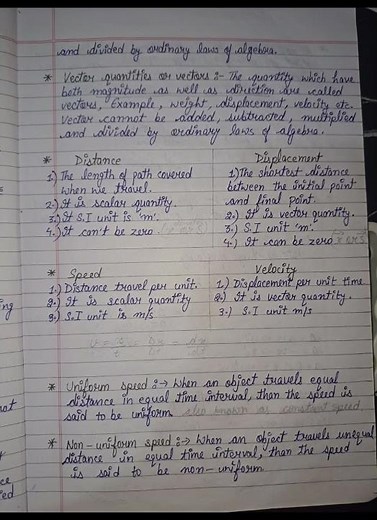 and divided by ordinary laws of algebra.
* Vector quantities or vectors :- The quantity which have
both magnitude as well as direction are called
vectors, Example, weight, displacement, velocity etc.
Vector cannot be added, subtracted, multiplied
and divided by ordinary laws of algebra.
* Distance
1.) The length of path covered
when we travel.
2.) It is scalar quantity.
3.) It S.I unit is 'm'.
4.) It can't be zero
Displacement
1.) The shortest distance
between the initial point
and final point.
2.) It is vector quantity.
3.) S.I unit 'm'.
4.) It can be zero
* Speed
1.) Distance travel per unit.
2.) It is scalar quantity
3.) S.I unit is m/s
Velocity
1.) Displacement per unit time
2.) It is vector quantity.
3.) S.I unit m/s
* Uniform speed :→ When an object travels equal
distance in equal time interval, than the speed is
said to be uniform also known as constant speed.
* Non-uniform speed :→ When an object travels unequal
distance in equal time interval, than the speed
is said to be non-uniform
ing
not
ce
ied